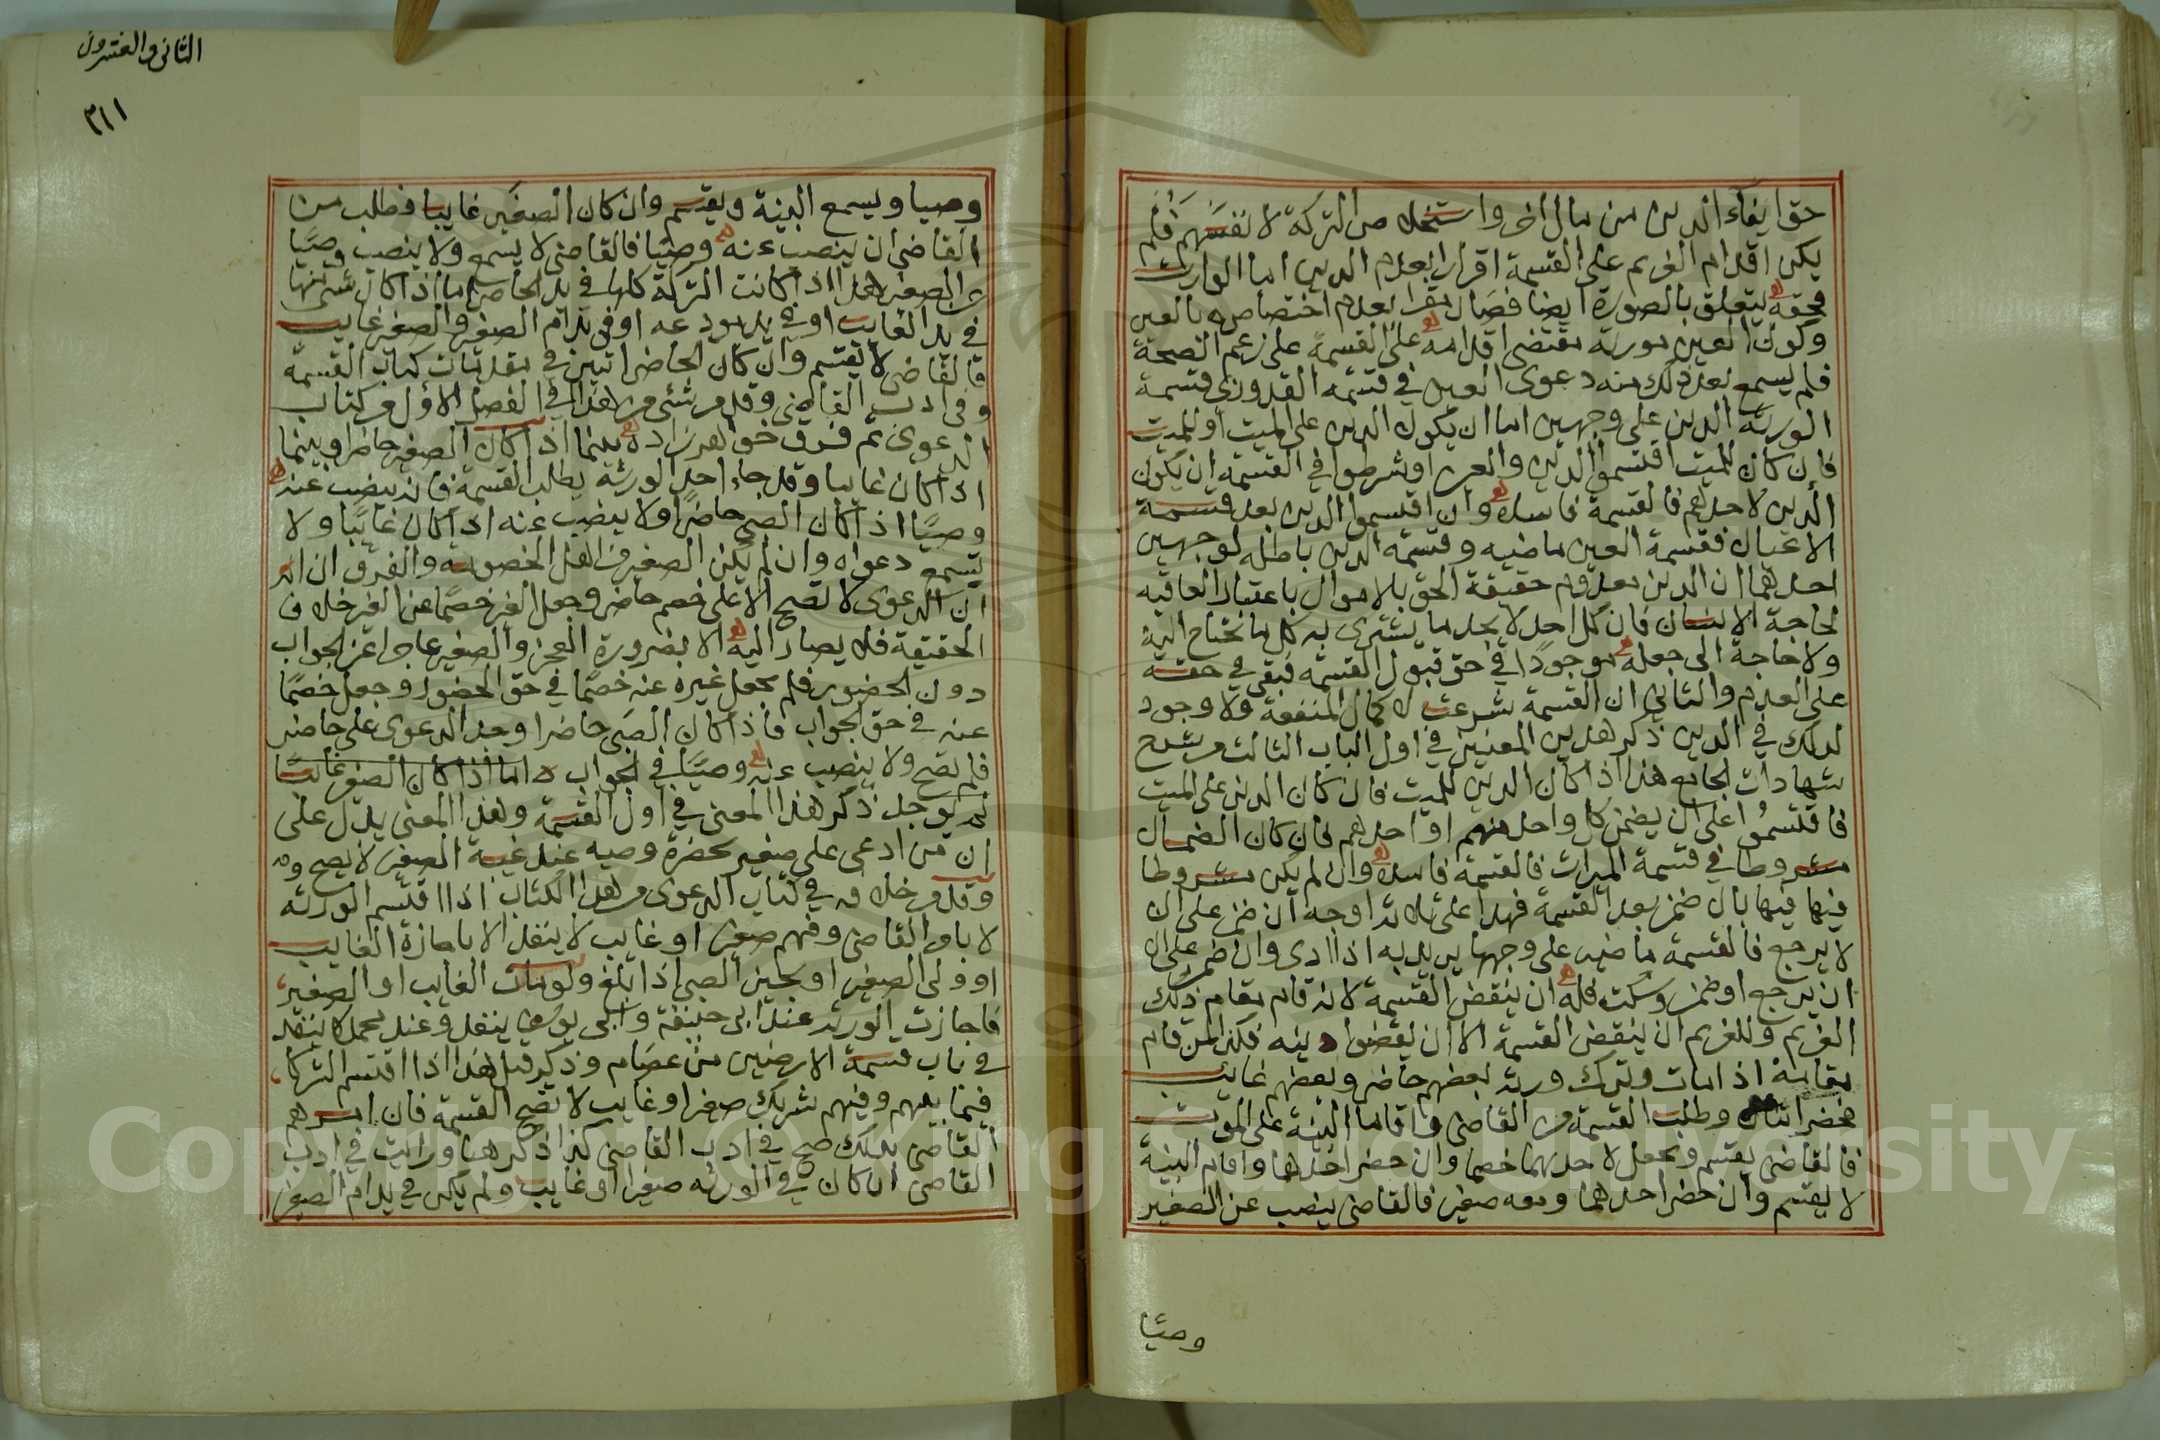 حق ايفاء الدين من مال اخر واستخلاص التركة لانفسهم فلم
يكن اقدام الغريم على القسمة اقرارا بعدم الدين اما الوارث
فحقه يتعلق بالصورة ايضا فصار مقرا بعدم اختصاصه بالعين
وكون العين موروثة مقتضى اقدامه على القسمة على زعم الصحة
فلم يسمع بعد ذلك منه دعوى العين في قسمة القدوري قسمة
الورثة الدين على وجهين اما ان يكون الدين على الميت او للميت
فان كان للميت اقتسموا الدين والعين او شرطوا في القسمة ان يكون
الدين لاحدهم فالقسمة فاسدة وان اقتسموا الدين بعد قسمة
الاعيان فقسمة العين ماضيه وقسمة الدين باطله لوجهين
احدهما ان الدين معدوم حقيقة الحق بالاموال باعتبار العاقبه
لحاجة الانسان فان كل احد لا يجد ما يشترى به كل ما يحتاج اليه
ولا حاجة الى جعله موجودا في حق قبول القسمة فبقى في حقه
على العدم والثانى ان القسمة شرعت لاكمال المنفعة ولا وجود
لذلك في الدين ذكر هذين المعنيين في اول الباب الثالث من شرح
شهادات الجامع هذا اذا كان الدين للميت فان كان الدين على الميت
فاقتسموا على ان يضمن كل واحد منهم او احدهم فان كان الضمان
مشروطا في قسمة الميراث فالقسمة فاسدة وان لم يكن مشروطا
فيها فيها بان ضمن بعد القسمة فهذا على ثلاثه اوجه ان ضمن على ان
لا يرجع فالقسمة ماضيه على وجهها يريد به اذا ادى وان ضمن على ان
ان يرجع او ضمن وسكت فله ان ينقض القسمة لانه قام مقام ذلك
الغريم وللغريم ان ينقض القسمة الا ان يقضوا دينه فكذا لمن قام
مقامه اذا مات وترك ورثه بعضهم حاضر وبعضهم غايب
فحضر اثنان وطلب القسمة من القاضى واقاما البينة على الموت
فالقاضى يقسم ويجعل لاحدهما خصما وان حضر احدهما واقام البينة
لا يقسم وان حضر احدهما ومعه صغير فالقاضى ينصب عن الصغير
وصيّا
الثانى والعشرون
٣١١
وصيا ويسمع البينة ويقسم وان كان الصغير غايبا فطلب من
القاضى ان ينصب عنه وصيا فالقاضى لا يسمع ولا ينصب وصيّا
عن الصغير هذا اذا كانت التركة كلها في يد الحاضر اما اذا كان شئ منها
في يد الغايب او في يد مودعه او في يد ام الصغير والصغير غايب
فالقاضى لا يقسم وان كان الحاضر اثنين في مقدمات كتاب القسمة
وفى ادب القاضى وقد مر شئ من هذا في الفصل الاول من كتاب
الدعوى ثم فرق خواهرزاده بينما اذا كان الصغير حاضرا وبينما
اذا كان غايبا وقد جاء احد الورثة يطلب القسمة فانه ينصب عنه
وصيّا اذا كان الصبى حاضرا ولا ينصب عنه اذا كان غايبا ولا
يسمع دعواه وان لم يكن الصغير من اهل الخصومة والفرق ان
ان الدعوى لا تصح الا على خصم حاضر وجعل الغير خصما عن الغير خلاف
الحقيقة فلا يصار اليه الا بضرورة العجز والصغير عاجز عن الجواب
دون الحضور فلم يجعل غيره عنه خصما في حق الحضور وجعل خصما
عنه في حق الجواب فاذا كان الصبى حاضرا وجد الدعوى على حاضر
فلم تصح ولا ينصب عنه وصيّا في الجواب اما اذا كان الصغير غايبا
لم يوجد ذكر هذا المعنى في اول القسمة وهذا المعنى يدل على
ان من ادعى على صغير بحضرة وصيه عند غيبة الصغير لا يصح
وقد مر خلافه في كتاب الدعوى من هذا الكتاب اذا اقتسم الورثه
لا بامر القاضى وفيهم صغير او غايب لا ينفذ الا باجازة الغايب
او ولى الصغير او يجيز الصبى اذا بلغ ولو مات الغايب او الصغير
فاجازت الورثة عند ابى حنيفة وابى يوسف ينفذ وعند محمد لا ينفذ
في باب قسمة الارضين من عصام وذكر قبل هذا اذا اقتسم الشركا
فيما بينهم وفيهم شريك صغير او غايب لا تصح القسمة فان امرهم
القاضى بذلك صح في ادب القاضى كذا ذكر هنا ورايت في ادب
القاضى ان كان في الورثه صغيرا او غايب ولم يكن في يد ام الصغير